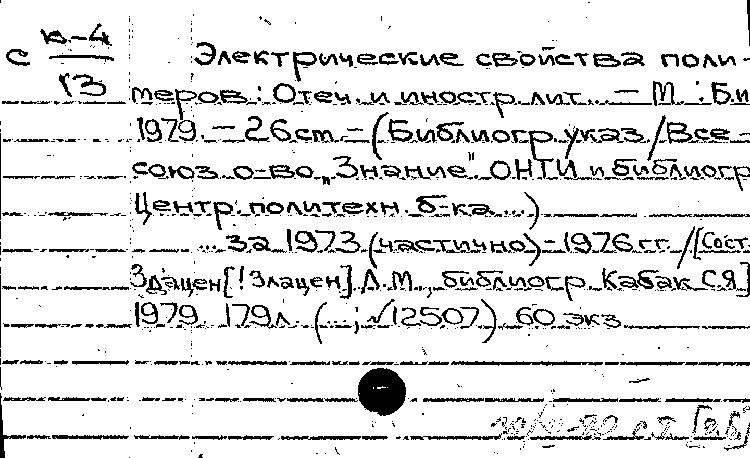 с к-4
13
Электрические свойства поли-
меров: Отеч. и иностр. лит... — М. : Б.и
1979. — 26 см — (Библиогр. указ / Все-
союз. о-во „Знание" ОНТИ и библиогр
Центр. политехн. б-ка ...)
... за 1973 (частично) - 1976 г.г. / [Сост.
Здацен [! Злацен] Л.М., библиогр. Кабак С.Я]
1979. 179 л. (...; √12507) 60 экз